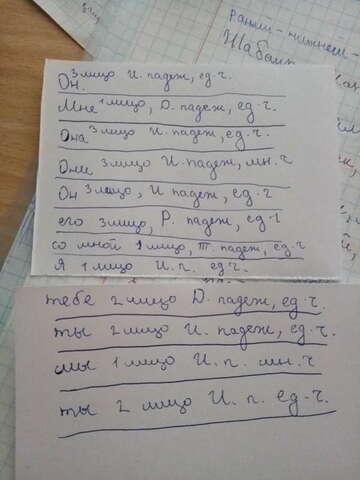 Ранш - нижнем -
Он 3 лицо И. падеж, ед. ч.
Мне 1 лицо, Д. падеж, ед. ч.
Она 3 лицо И. падеж, ед. ч.
Они 3 лицо И. падеж, мн. ч
Он 3 лицо, И падеж, ед. ч
его 3 лицо, Р. падеж, ед. ч
со мной 1 лицо, Т. падеж, ед ч
Я 1 лицо И. п. ед. ч.
тебе 2 лицо Д. падеж, ед. ч.
ты 2 лицо И. падеж, ед. ч.
мы 1 лицо И. п. мн. ч
ты 2 лицо И. п. ед. ч.